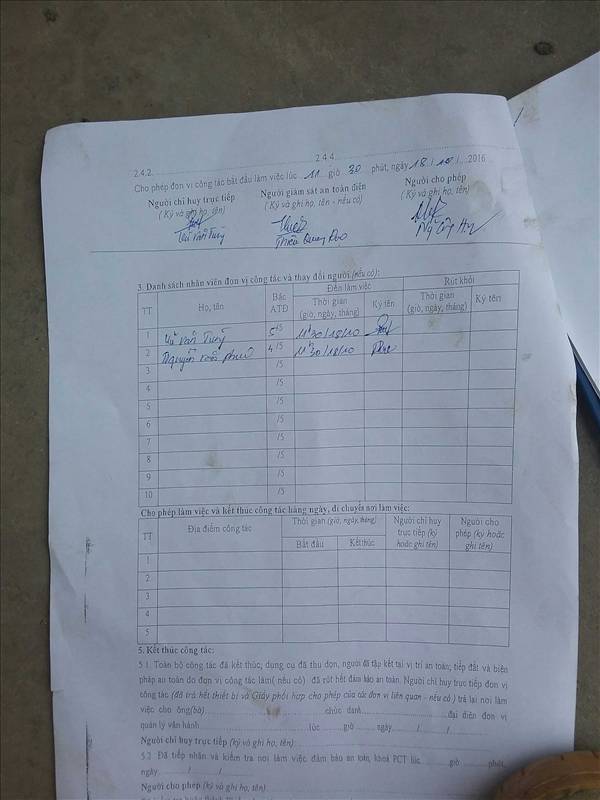 2.4.2. 2.4.4.
Cho phép đơn vị công tác bắt đầu làm việc lúc 11 giờ 30 phút, ngày 18/10/...2016
Người chỉ huy trực tiếp Người giám sát an toàn điện Người cho phép
(Ký và ghi họ, tên) (Ký và ghi họ, tên - nếu có) (Ký và ghi họ, tên)
Vũ Văn Tùng Thiều Quang
3. Danh sách nhân viên đơn vị công tác và thay đổi người (nếu có):
TT Họ, tên Bậc ATĐ Đến làm việc Rút khỏi
Thời gian (giờ, ngày, tháng) Ký tên Thời gian (giờ, ngày, tháng) Ký tên
1 Vũ Văn Tùng 5/5 11h30/18/10
2 Nguyễn 4/5 11h30/18/10
3 /5
4 /5
5 /5
6 /5
7 /5
8 /5
9 /5
10 /5
Cho phép làm việc và kết thúc công tác hàng ngày, di chuyển nơi làm việc:
TT Địa điểm công tác Thời gian (giờ, ngày, tháng) Người chỉ huy trực tiếp (ký hoặc ghi tên) Người cho phép (ký hoặc ghi tên)
Bắt đầu Kết thúc
1
2
3
4
5
5. Kết thúc công tác:
5.1. Toàn bộ công tác đã kết thúc; dụng cụ đã thu dọn, người đã tập kết tại vị trí an toàn; tiếp đất và biện
pháp an toàn do đơn vị công tác làm( nếu có) đã rút hết đảm bảo an toàn. Người chỉ huy trực tiếp đơn vị
công tác (đã trả hết thiết bị và Giấy phối hợp cho phép của các đơn vị liên quan - nếu có) trả lại nơi làm
việc cho ông(bà) chức danh đại diện đơn vị
quản lý vận hành lúc giờ ngày / /
Người chỉ huy trực tiếp (ký và ghi họ, tên):
5.2. Đã tiếp nhận và kiểm tra nơi làm việc đảm bảo an toàn, khoá PCT lúc giờ phút,
ngày / /
Người cho phép (ký và ghi họ, tên)